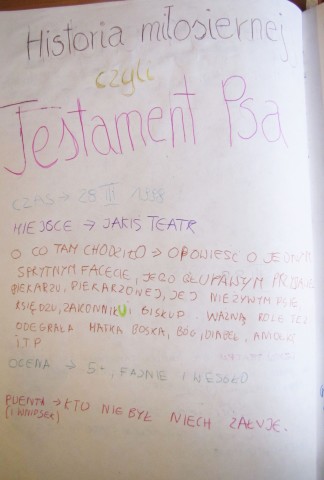 Historia miłosiernej
czyli
Testament Psa
CZAS → 28 III 1998
MIEJSCE → JAKIS TEATR
O CO TAM CHODZIŁO → OPOWIEŚĆ O JEDNYM
SPRYTNYM FACECIE, JEGO GŁUPAWYM
PIEKARZU, PIEKARZOWEJ, JEJ NIEŻYWYM PSIE,
KSIĘDZU, ZAKONNIKU I BISKUP... WAŻNĄ ROLE TEŻ
ODEGRAŁA MATKA BOSKA, BÓG, DIABEŁ, ANIOŁ
I.T.P
OCENA → 5+, FAJNIE I WESOŁO
PUENTA → KTO NIE BYŁ NIECH ŻAŁUJE.
(I WNIOSEK)